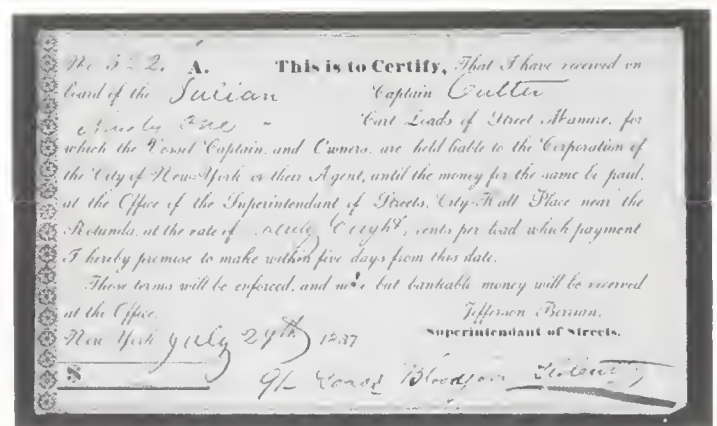 No 522. A. This is to Certify, That I have received on
board of the Julian Captain Cutter
Ninety One - Cart Loads of Street Manure, for
which the Vessel Captain, and Owners, are held liable to the Corporation of
the City of New-York or their Agent, until the money for the same be paid,
at the Office of the Superintendant of Streets, City-Hall Place near the
Rotunda, at the rate of Eight, cents per load which payment
I hereby promise to make within five days from this date.
These terms will be enforced, and none but bankable money will be received
at the Office. Jefferson Berrian,
New York July 29th 1837 Superintendant of Streets.
$ 91 Loads Bloodgood